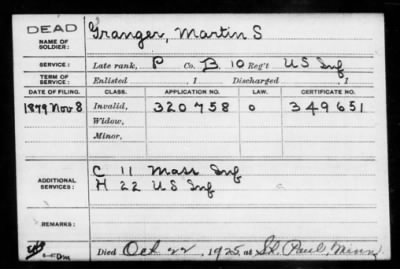 DEAD
NAME OF SOLDIER: Granger, Martin S
SERVICE: Late rank, P Co. B, 10 Reg't US Inf
TERM OF SERVICE: Enlisted , 1 Discharged , 1
DATE OF FILING. CLASS. APPLICATION NO. LAW. CERTIFICATE NO.
1879 Nov 8 Invalid, 320758 0 349651
Widow,
Minor,
ADDITIONAL SERVICES: C 11 Mass Inf
H 22 US Inf
REMARKS:
Died Oct 22, 1925, at St. Paul, Minn